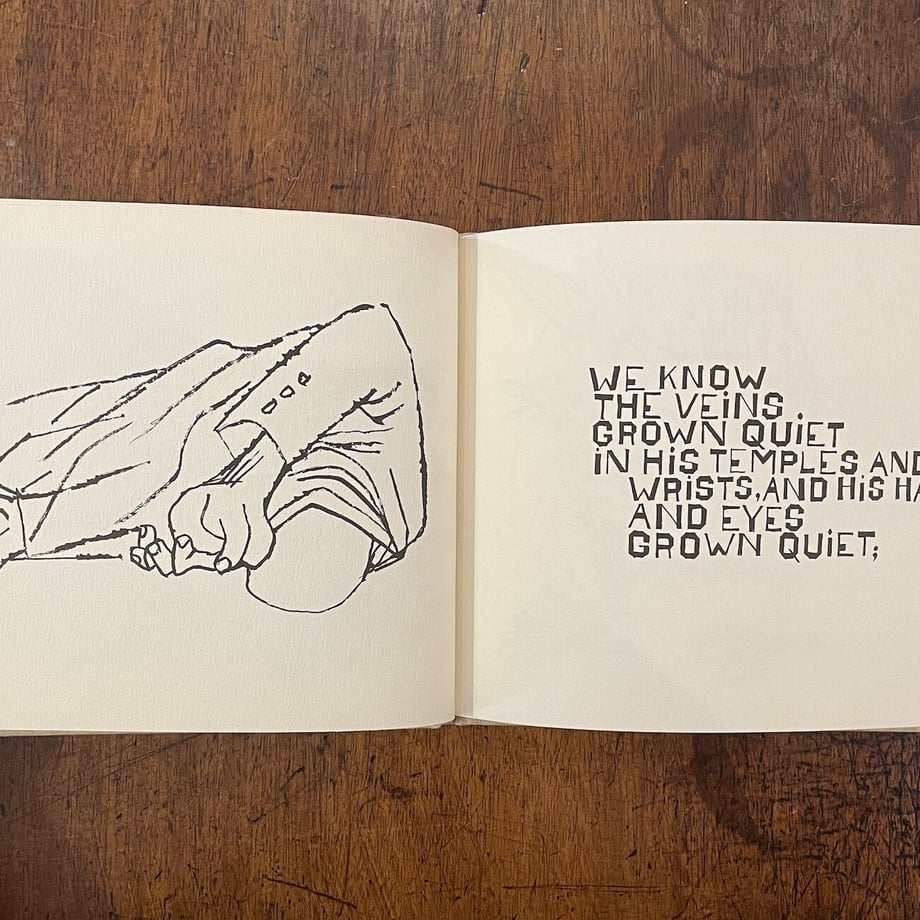 WE KNOW
THE VEiNS
GROWN QUiET
iN HiS TEMPLES AND
WRiSTS, AND HiS
AND EYES
GROWN QUiET;